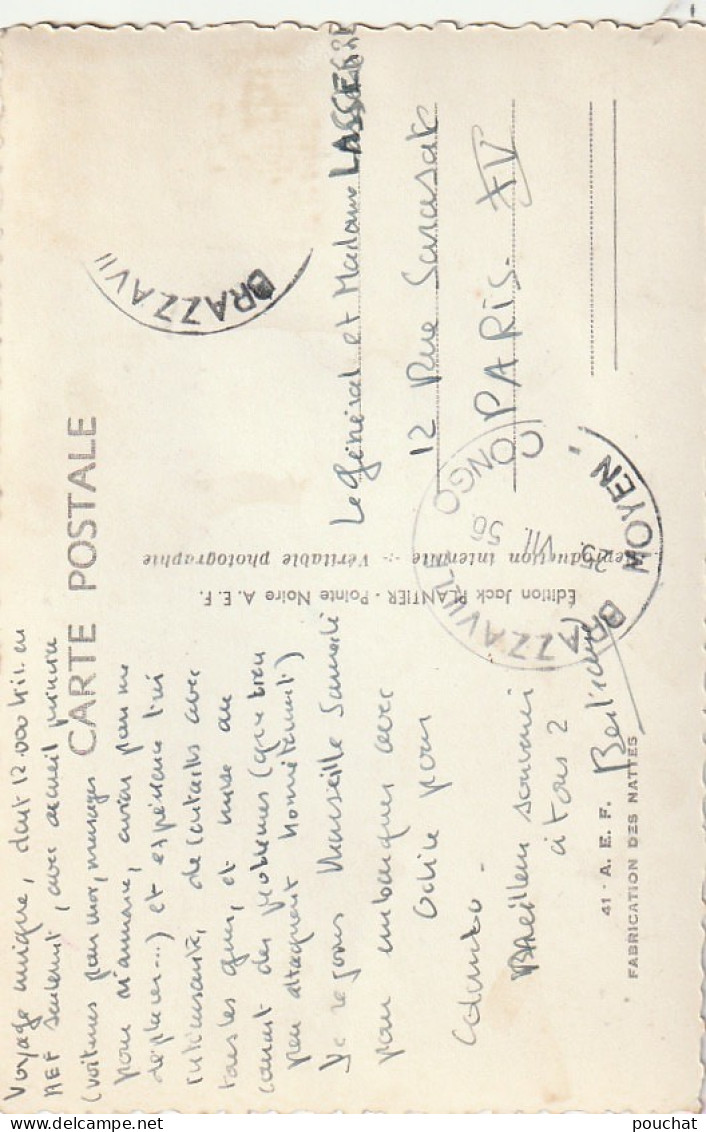 CARTE POSTALE
Voyage unique, dont 12.000 Km en
AEF seulement, avec accueil
(voitures pour moi, messages
pour m'annoncer, avion pour me
déplacer...) et expérience
intéressante, de contacts avec
tous les gens, et mise au
courant des problèmes (que bien
peu attaquent honnêtement)
Je rejoins Marseille Samedi
pour embarquer avec
Odile pour
Colombo.
Meilleur souvenir
à tous 2
Bertrand
Le Général et Madame LASSERRE
12 Rue Sarasate
PARIS. XV
BRAZZAVILLE
BRAZZAVILLE
25 VII. 56
MOYEN CONGO
Édition Jack PLANTIER - Pointe Noire A. E. F.
Reproduction interdite -:- Véritable photographie
41 - A. E. F.
FABRICATION DES NATTES
pouchat